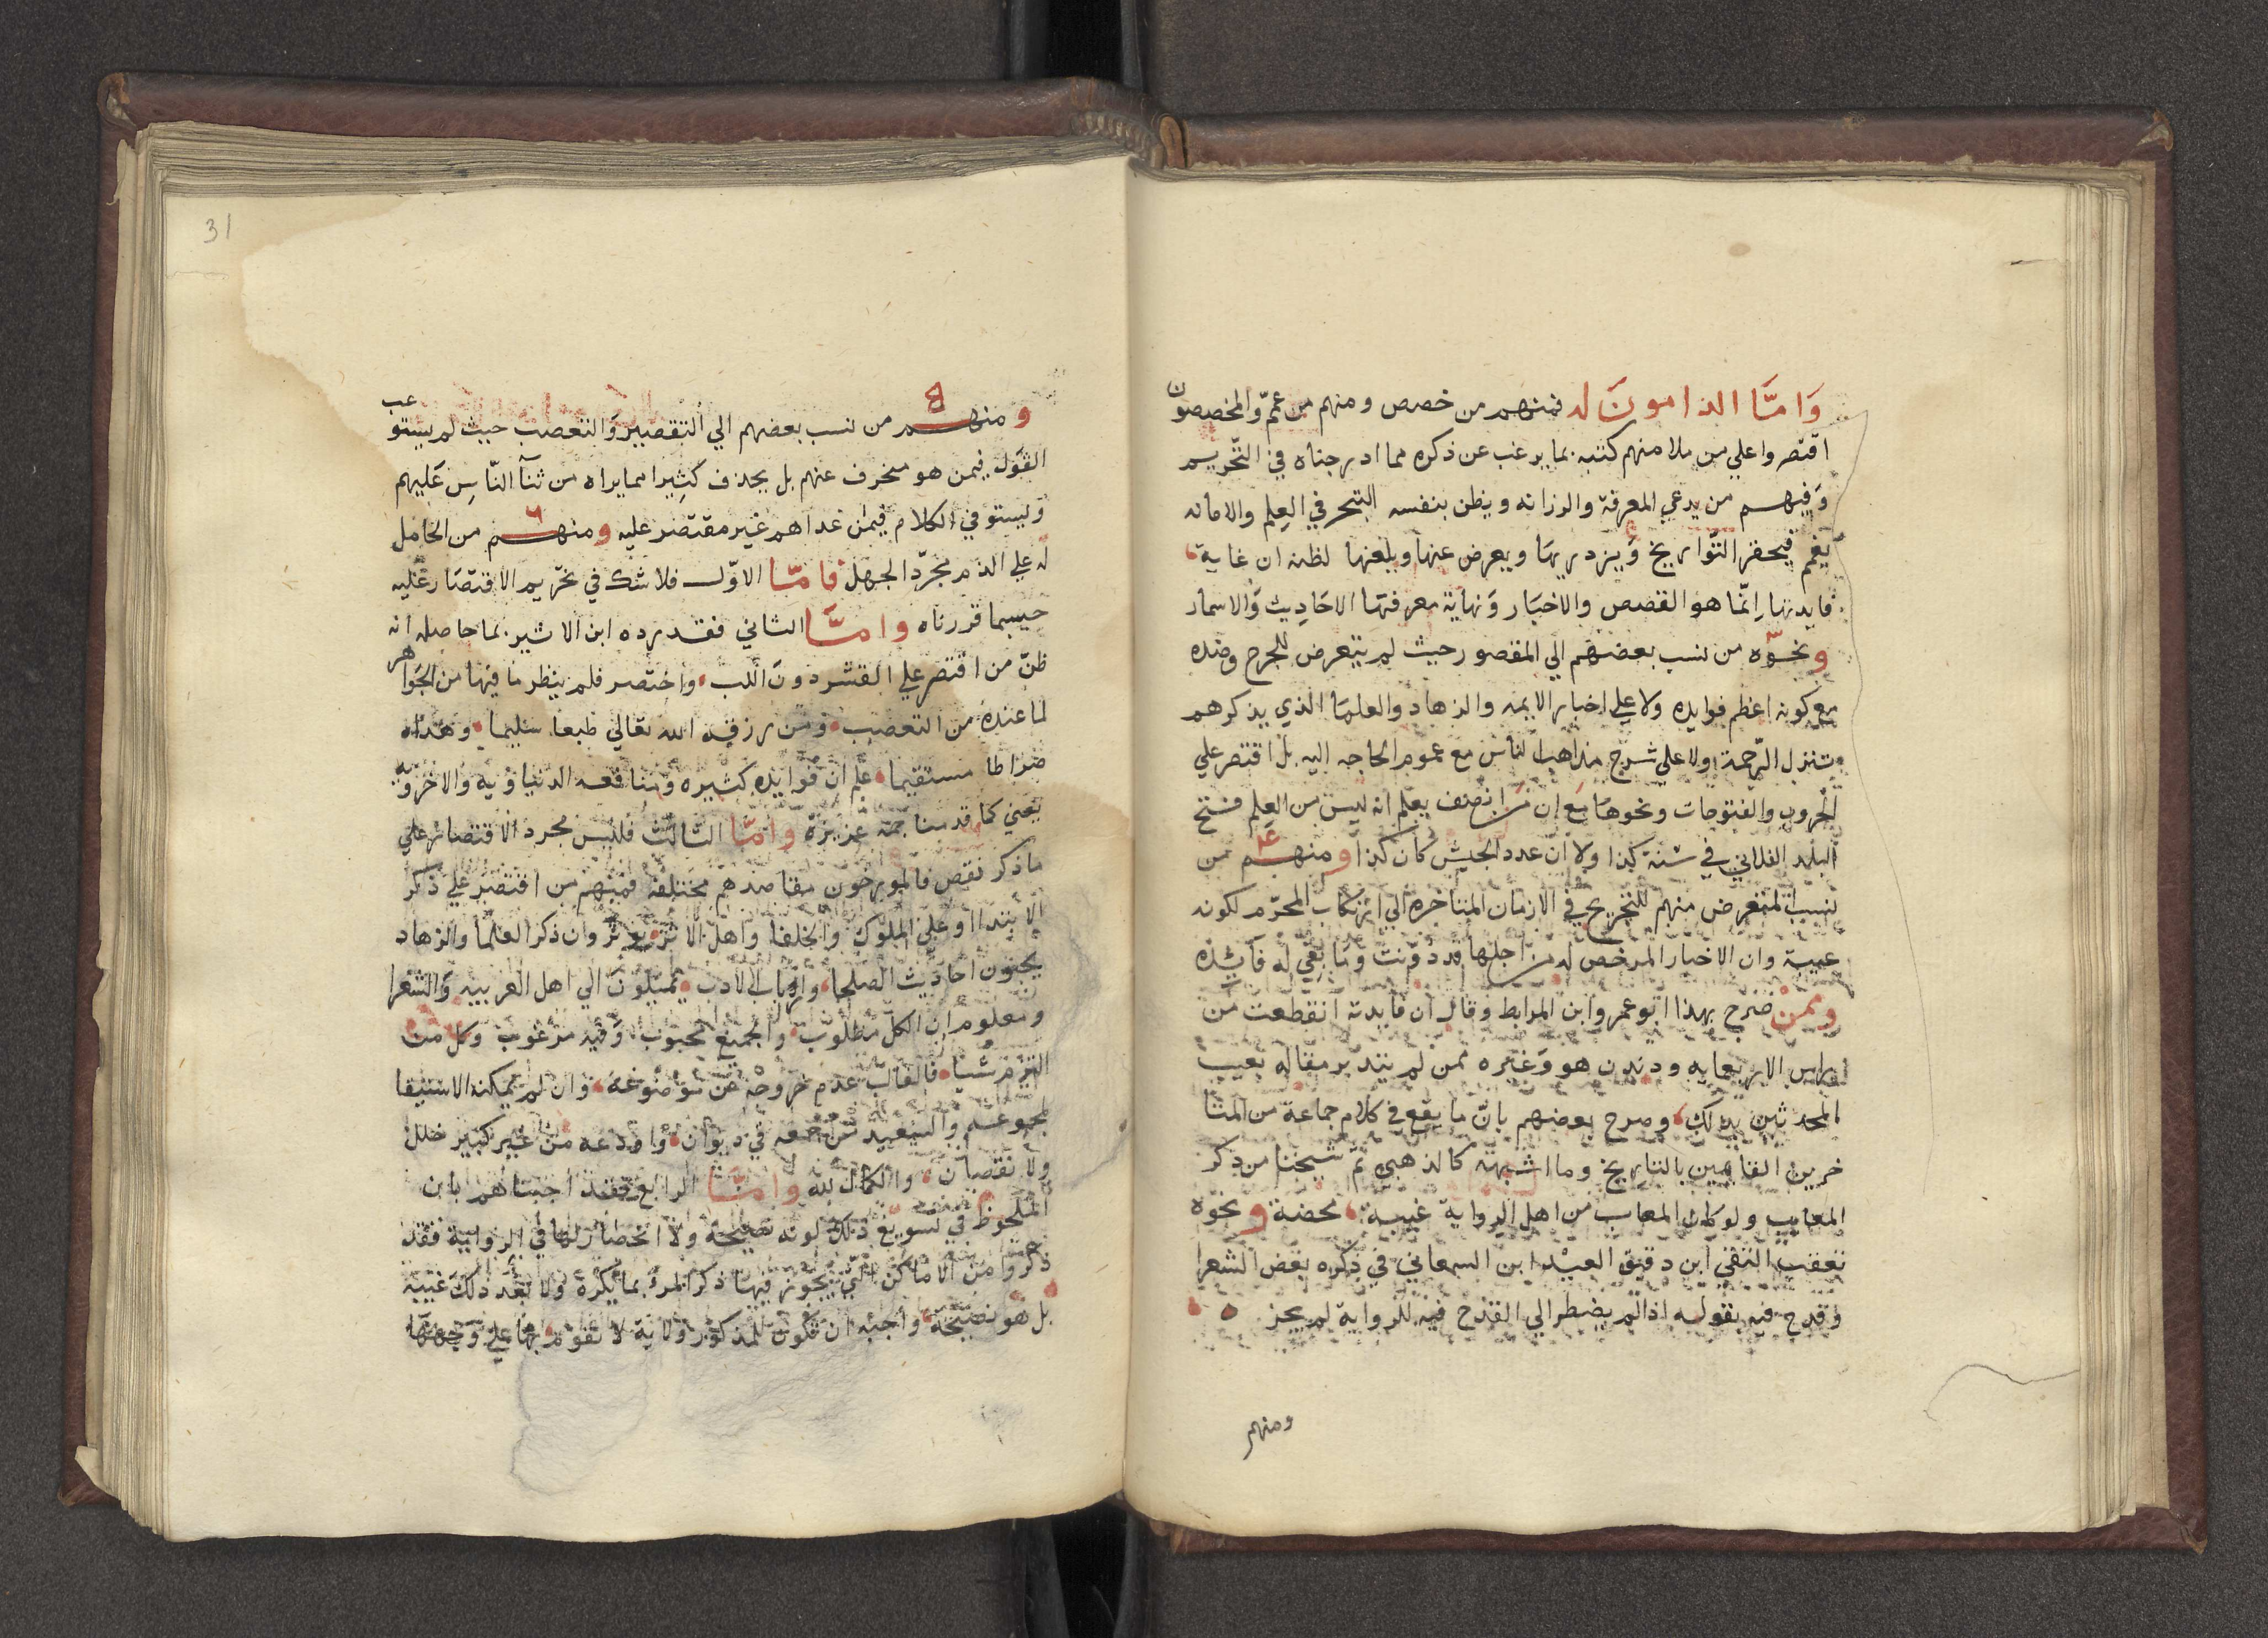 وَامَّا الذامونَ له فمنهم من خصص ومنهم من عمّ والمخصصون
اقتصروا علي من ملا منهم كتبه بما يرغب عن ذكره مما ادرجناه في التّحريم
وَفيهم من يدعي المعرفة والرزانه ويظن بنفسه التبحر في العِلم والامانه
فيحقر التَّواريخ وَيزدريهَا ويعرض عنها ويلغيها لظنه ان غاية
فايدتها اِنّما هو القصص والاخبَار وَنهاية معرفتهَا الاحَادِيث وَالاسمار
ونحوّه من نسب بعضهم الي المقصور حيث لم يتعرض للجرح وضده
مع كونه اعظم فوايده ولا علي اخبار الايمه والزهاد والعلمَا الذي بذكرهم
تتنزل الرّحمة ولا علي شرح مذاهب الناس مع عموم الحاجه اليه بل اقتصر علي
الحُروب والفتوحات ونحوهَا مَع ان من انصف يعلم انه ليس من العِلم فتح
البلد الفلاني في سَنة كذا ولا ان عدد الجيش كان كذا ومنهم من
نسب المتعرض منهم للتجريح في الازمان المتاخرة الي ارتكاب المحرّم لكونه
غيبة وان الاخبار المرخص له من اجلها قد دوّنت وما بقي له فائده
وممن صرح بهذا ابو عمرو ابن المرابط وقال ان فايدته انقطعت من
راس الاربعمايه ودندن هو وَغيره ممن لم يتدبر مقاله بعيب
المحدثين بذلك، وصرح بعضهم بانّ ما يقع في كلام جماعة من المتا
خرين القايمين بالتاريخ وما اشبهه كالذهبي ثمّ شيخنا من ذكر
المعايب ولو كان المعاب من اهل الرواية غيبة، محضة ونحوه
تعقب التقي ابن دقيق العيْد ابن السمعاني في ذكره بعض الشعرا
وقدح فيه بقوله اذا لم يضطر الي القدح فيه للرواية لم يجز
ومنهم
31
ومنهم من نسب بعضهم الي التقصير وَالتعصب حيث لم يستوعب
القوَل فيمن هو منحرف عنهم بل يحذف كثِيرا مما يراه من ثنآ النّاس عَليهم
وَيستوفي الكلام فيمن عداهم غير مقتصر عليه ومنهم من الحامل
له علي الذم مجرّد الجهل فامّا الاوّل فلا شك في تحرّيم الاقتصَار عَليه
حسبما قررناه وامَّا الثاني فقد رده ابن الاثير بما حاصله انه
ظنّ من اقتصر علي القشر دونَ اللب، واختصر فلم ينظر ما فيها من الجَواهر
لما عنده من التعصب، ومن رزقه الله تعالي طبعا سَليما، وهدَاه
صراطا مستقيما، علم ان فوايده كثيره ومنافعه الدنياوُيه وَالاخرَويّه
يعني كما قدمنا جمّه غزيرَه وامّا الثالث فليس مجرد الاقتصار علي
ما ذكر نقص فالمورخون مقاصدهم مختلفة فمنهم من اقتصر علي ذكر
الابتدا او علي الملوك والخلفا واهل الاثر يوثر وان ذكر العلما والزهاد
يحبون احاديث الصلحا، وارباب الادب يميلون الي اهل العربيه وَالشعرا
ومعلوم ان الكل مطلوب، والجميع محبوب، وَفيه مرغوب وكل من
التزم شيا، فالغالب عدم خروجه عن موضوعه، وان لم يمكنه الاستيفا
لمجموعه والسعيد من جمعه في ديوان، واودعه من غير كبير خلل
ولا نقصان، والكمال لله وامَّا الرابع فقد اجبناهم بان
الملحوظ في تسويغ ذلك كونه نصيحة ولا انحصار لها في الرواية فقد
ذكروا من الاماكن التي يجوز فيها ذكر المرء بما يكره ولا يعد ذلك غيبة
بل هو نصيحة واجبه ان تكون للمذكور ولاية لا يقوم بها علي وجهها